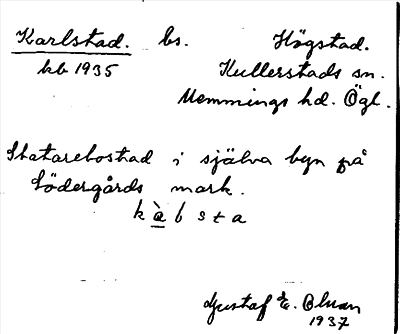 Karlstad. bs. Högstad.
kb 1935 Kullerstads sn.
Memmings hd. Ögl.
Statarebostad i själva byn på
Södergårds mark.
k à b s t a
Gustaf E. Olsson
1937